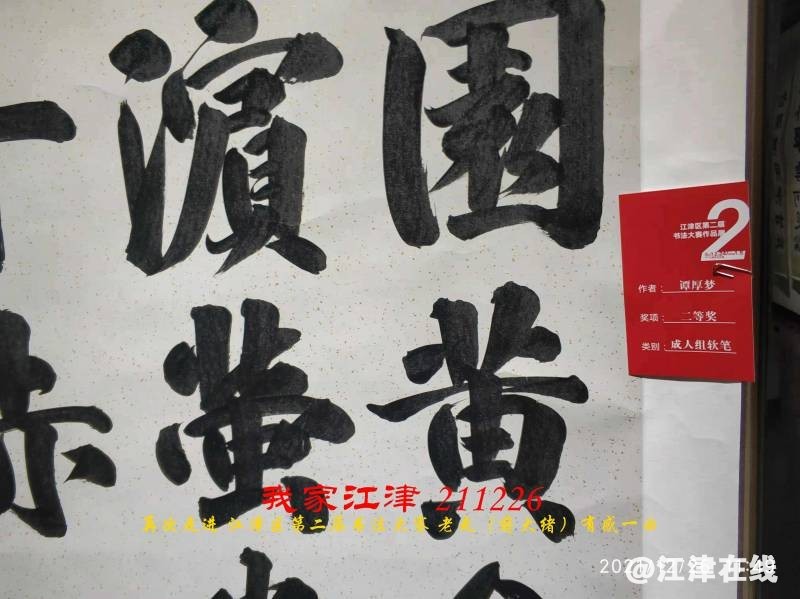 園黄
濱
江津区第二届
书法大赛作品展
2
作者：谭厚梦
奖项：二等奖
类别：成人组软笔
我家江津 211226
再次走进 江津区第二届书法大赛 有感一
@江津在线